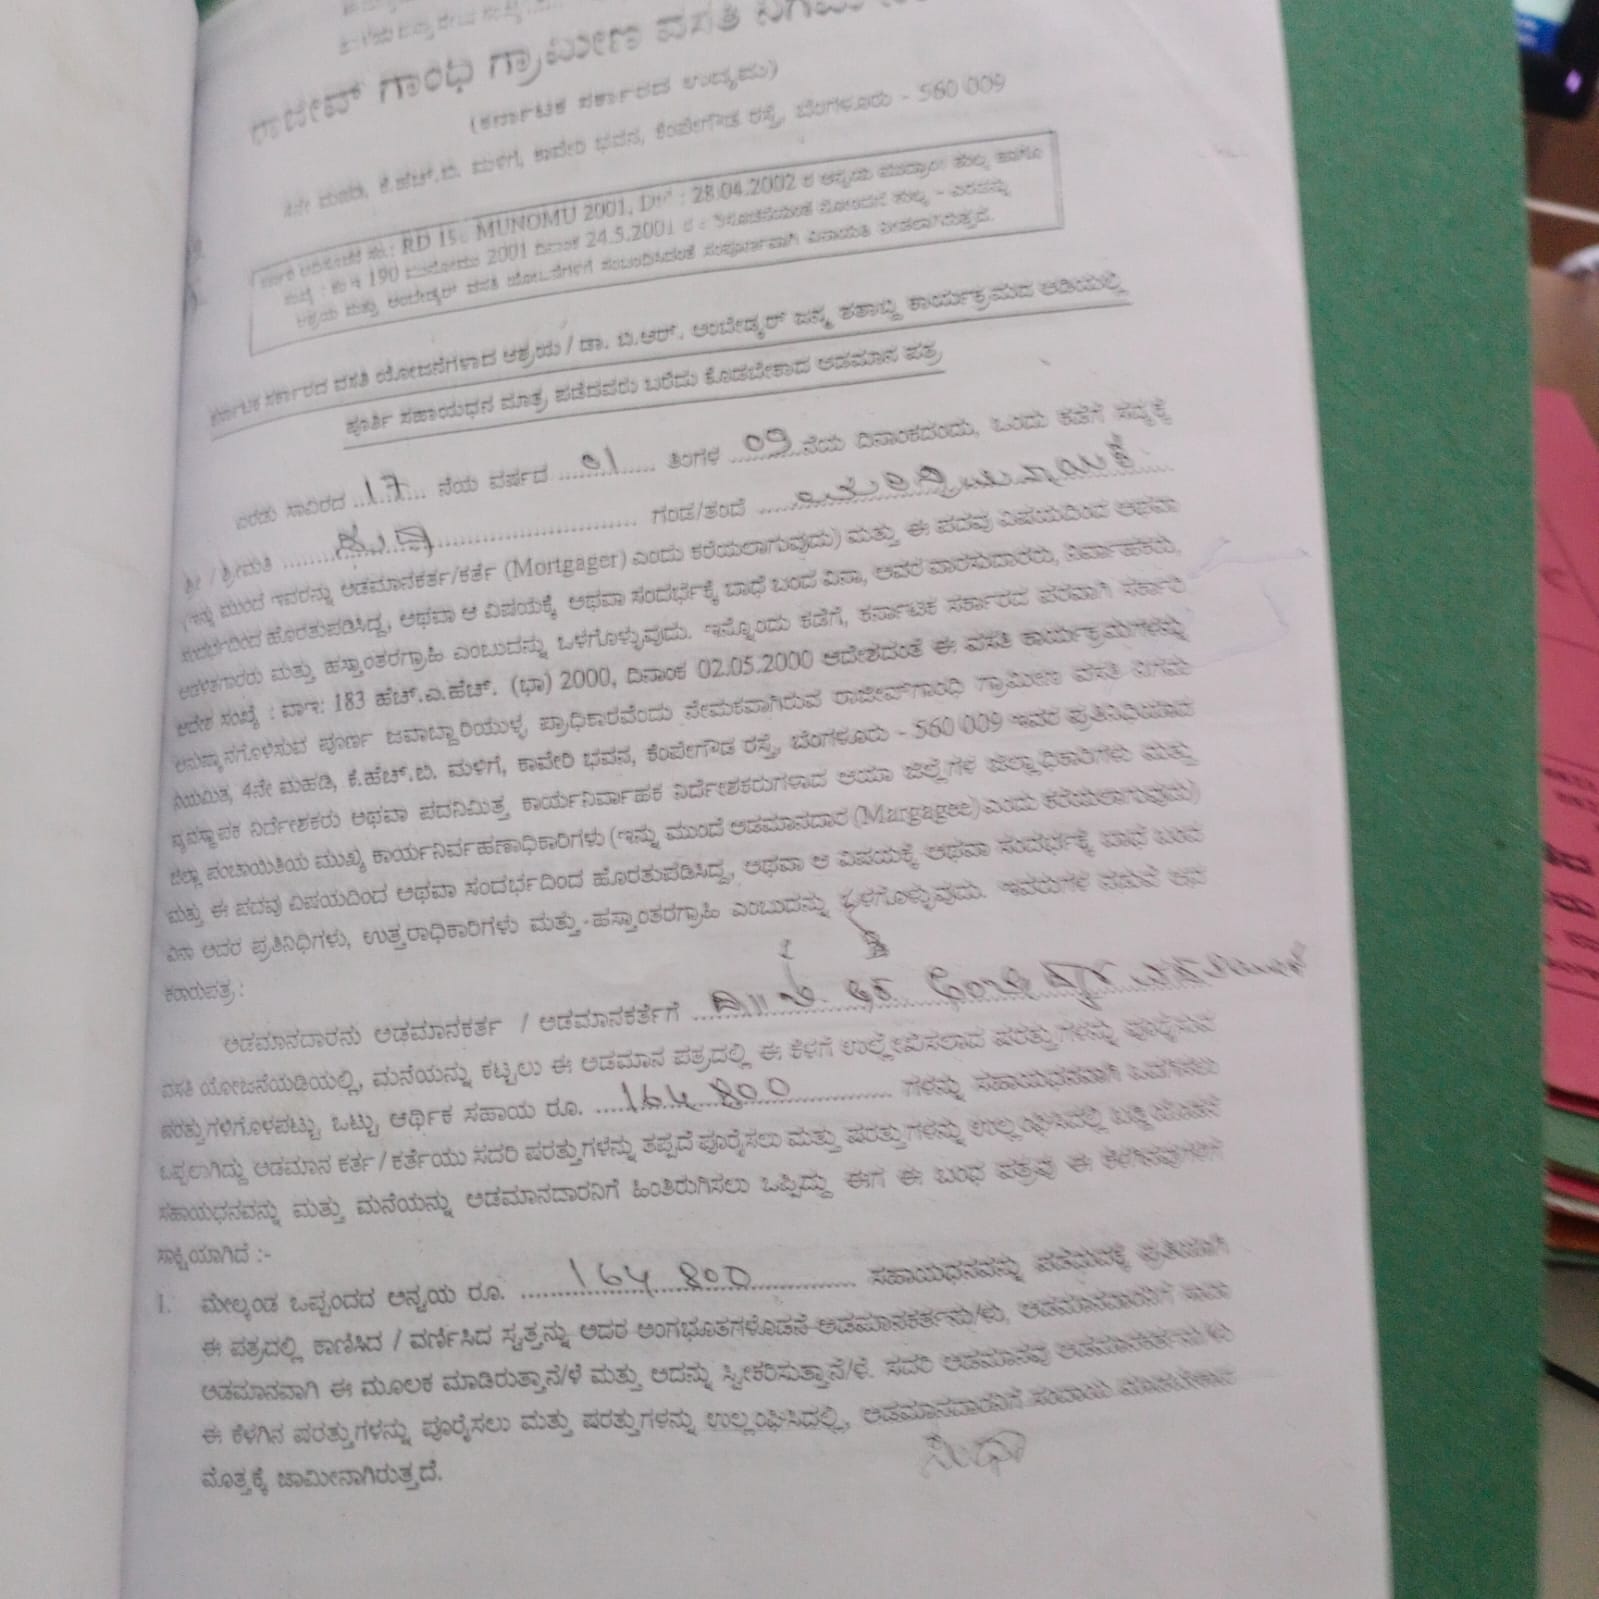 ರಾಜೀವ್ ಗಾಂಧಿ ಗ್ರಾಮೀಣ ವಸತಿ ನಿಗಮ
(ಕರ್ನಾಟಕ ಸರ್ಕಾರದ ಉದ್ಯಮ)
ಮಹಡಿ, ಕೆ.ಹೆಚ್.ಬಿ. ಮಳಿಗೆ, ಕಾವೇರಿ ಭವನ, ಕೆಂಪೇಗೌಡ ರಸ್ತೆ, ಬೆಂಗಳೂರು - 560 009
RD MUNOMU 2001, 28.04.2002 ರ ಅನ್ವಯ ಮುದ್ರಾಂಕ ಶುಲ್ಕ ಹಾಗೂ
190 ಮುನೋಮು 2001 ದಿನಾಂಕ 24.5.2001 ರ ನೋಂದಣಿ ಶುಲ್ಕ - ಎರಡನ್ನು
ಆಶ್ರಯ ಮತ್ತು ಅಂಬೇಡ್ಕರ್ ವಸತಿ ಯೋಜನೆಗಳಿಗೆ ಸಂಬಂಧಿಸಿದಂತೆ ಸಂಪೂರ್ಣವಾಗಿ ವಿನಾಯಿತಿ ನೀಡಲಾಗಿರುತ್ತದೆ.
ಕರ್ನಾಟಕ ಸರ್ಕಾರದ ವಸತಿ ಯೋಜನೆಗಳಾದ ಆಶ್ರಯ / ಡಾ. ಬಿ.ಆರ್. ಅಂಬೇಡ್ಕರ್ ಜನ್ಮ ಶತಾಬ್ದಿ ಕಾರ್ಯಕ್ರಮದ ಅಡಿಯಲ್ಲಿ
ಪೂರ್ತಿ ಸಹಾಯಧನ ಮಾತ್ರ ಪಡೆದವರು ಬರೆದು ಕೊಡಬೇಕಾದ ಅಡಮಾನ ಪತ್ರ
ಎರಡು ಸಾವಿರದ 17 ನೆಯ ವರ್ಷದ 01 ತಿಂಗಳ 09 ನೆಯ ದಿನಾಂಕದಂದು, ಒಂದು ಕಡೆಗೆ ಸದ್ಯಕ್ಕೆ
ಶ್ರೀ / ಶ್ರೀಮತಿ ಗಂಡ/ತಂದೆ
(ಇನ್ನು ಮುಂದೆ ಇವರನ್ನು ಅಡಮಾನಕರ್ತ/ಕರ್ತೆ (Mortgager) ಎಂದು ಕರೆಯಲಾಗುವುದು) ಮತ್ತು ಈ ಪದವು ವಿಷಯದಿಂದ ಅಥವಾ
ಸಂದರ್ಭದಿಂದ ಹೊರತುಪಡಿಸಿದ್ದ, ಅಥವಾ ಆ ವಿಷಯಕ್ಕೆ ಅಥವಾ ಸಂದರ್ಭಕ್ಕೆ ಬಾಧೆ ಬಂದ ವಿನಾ, ಅವರ ವಾರಸುದಾರರು, ನಿರ್ವಾಹಕರು,
ಆಡಳಿತಗಾರರು ಮತ್ತು ಹಸ್ತಾಂತರಗ್ರಾಹಿ ಎಂಬುದನ್ನು ಒಳಗೊಳ್ಳುವುದು. ಇನ್ನೊಂದು ಕಡೆಗೆ, ಕರ್ನಾಟಕ ಸರ್ಕಾರದ ಪರವಾಗಿ ಸರ್ಕಾರಿ
ಆದೇಶ ಸಂಖ್ಯೆ : ವಾಇ: 183 ಹೆಚ್.ಎ.ಹೆಚ್. (ಭಾ) 2000, ದಿನಾಂಕ 02.05.2000 ಆದೇಶದಂತೆ ಈ ವಸತಿ ಕಾರ್ಯಕ್ರಮಗಳನ್ನು
ಅನುಷ್ಠಾನಗೊಳಿಸುವ ಪೂರ್ಣ ಜವಾಬ್ದಾರಿಯುಳ್ಳ ಪ್ರಾಧಿಕಾರವೆಂದು ನೇಮಕವಾಗಿರುವ ರಾಜೀವ್‌ಗಾಂಧಿ ಗ್ರಾಮೀಣ ವಸತಿ ನಿಗಮ
ನಿಯಮಿತ, 4ನೇ ಮಹಡಿ, ಕೆ.ಹೆಚ್.ಬಿ. ಮಳಿಗೆ, ಕಾವೇರಿ ಭವನ, ಕೆಂಪೇಗೌಡ ರಸ್ತೆ, ಬೆಂಗಳೂರು - 560 009 ಇವರ ಪ್ರತಿನಿಧಿಯಾದ
ವ್ಯವಸ್ಥಾಪಕ ನಿರ್ದೇಶಕರು ಅಥವಾ ಪದನಿಮಿತ್ತ ಕಾರ್ಯನಿರ್ವಾಹಕ ನಿರ್ದೇಶಕರುಗಳಾದ ಆಯಾ ಜಿಲ್ಲೆಗಳ ಜಿಲ್ಲಾಧಿಕಾರಿಗಳು ಮತ್ತು
ಜಿಲ್ಲಾ ಪಂಚಾಯಿತಿಯ ಮುಖ್ಯ ಕಾರ್ಯನಿರ್ವಹಣಾಧಿಕಾರಿಗಳು (ಇನ್ನು ಮುಂದೆ ಅಡಮಾನದಾರ (Margagee) ಎಂದು ಕರೆಯಲಾಗುವುದು)
ಮತ್ತು ಈ ಪದವು ವಿಷಯದಿಂದ ಅಥವಾ ಸಂದರ್ಭದಿಂದ ಹೊರತುಪಡಿಸಿದ್ದ, ಅಥವಾ ಆ ವಿಷಯಕ್ಕೆ ಅಥವಾ ಸಂದರ್ಭಕ್ಕೆ ಬಾಧೆ ಬಂದ
ವಿನಾ ಅದರ ಪ್ರತಿನಿಧಿಗಳು, ಉತ್ತರಾಧಿಕಾರಿಗಳು ಮತ್ತು ಹಸ್ತಾಂತರಗ್ರಾಹಿ ಎಂಬುದನ್ನು ಒಳಗೊಳ್ಳುವುದು. ಇವರುಗಳ ನಡುವೆ ಆದ
ಕರಾರುಪತ್ರ :
ಅಡಮಾನದಾರನು ಅಡಮಾನಕರ್ತ / ಅಡಮಾನಕರ್ತೆಗೆ
ವಸತಿ ಯೋಜನೆಯಡಿಯಲ್ಲಿ, ಮನೆಯನ್ನು ಕಟ್ಟಲು ಈ ಅಡಮಾನ ಪತ್ರದಲ್ಲಿ ಈ ಕೆಳಗೆ ಉಲ್ಲೇಖಿಸಲಾದ ಷರತ್ತುಗಳನ್ನು ಪೂರೈಸುವ
ಷರತ್ತುಗಳಿಗೊಳಪಟ್ಟು, ಒಟ್ಟು, ಆರ್ಥಿಕ ಸಹಾಯ ರೂ. 164 800 ಗಳನ್ನು ಸಹಾಯಧನವಾಗಿ ಒದಗಿಸಲು
ಒಪ್ಪಲಾಗಿದ್ದು ಅಡಮಾನ ಕರ್ತ / ಕರ್ತೆಯು ಸದರಿ ಷರತ್ತುಗಳನ್ನು ತಪ್ಪದೆ ಪೂರೈಸಲು ಮತ್ತು ಷರತ್ತುಗಳನ್ನು ಉಲ್ಲಂಘಿಸಿದಲ್ಲಿ ಬಡ್ಡಿಯೊಡನೆ
ಸಹಾಯಧನವನ್ನು ಮತ್ತು ಮನೆಯನ್ನು ಅಡಮಾನದಾರನಿಗೆ ಹಿಂತಿರುಗಿಸಲು ಒಪ್ಪಿದ್ದು ಈಗ ಈ ಬಂಧ ಪತ್ರವು ಈ ಕೆಳಗಿನವುಗಳಿಗೆ
ಸಾಕ್ಷಿಯಾಗಿದೆ :-
1. ಮೇಲ್ಕಂಡ ಒಪ್ಪಂದದ ಅನ್ವಯ ರೂ. 164 800 ಸಹಾಯಧನವನ್ನು ಪಡೆದುದಕ್ಕೆ ಪ್ರತಿಯಾಗಿ
ಈ ಪತ್ರದಲ್ಲಿ ಕಾಣಿಸಿದ / ವರ್ಣಿಸಿದ ಸ್ವತ್ತನ್ನು ಅದರ ಅಂಗಭೂತಗಳೊಡನೆ ಅಡಮಾನಕರ್ತನು/ಳು, ಅಡಮಾನದಾರನಿಗೆ
ಅಡಮಾನವಾಗಿ ಈ ಮೂಲಕ ಮಾಡಿರುತ್ತಾನೆ/ಳೆ ಮತ್ತು ಅದನ್ನು ಸ್ವೀಕರಿಸುತ್ತಾನೆ/ಳೆ. ಸದರಿ ಅಡಮಾನವು ಅಡಮಾನಕರ್ತನು/ಳು
ಈ ಕೆಳಗಿನ ಷರತ್ತುಗಳನ್ನು ಪೂರೈಸಲು ಮತ್ತು ಷರತ್ತುಗಳನ್ನು ಉಲ್ಲಂಘಿಸಿದಲ್ಲಿ, ಅಡಮಾನದಾರನಿಗೆ ಸಂದಾಯ ಮಾಡಬೇಕಾದ
ಮೊತ್ತಕ್ಕೆ ಜಾಮೀನಾಗಿರುತ್ತದೆ.